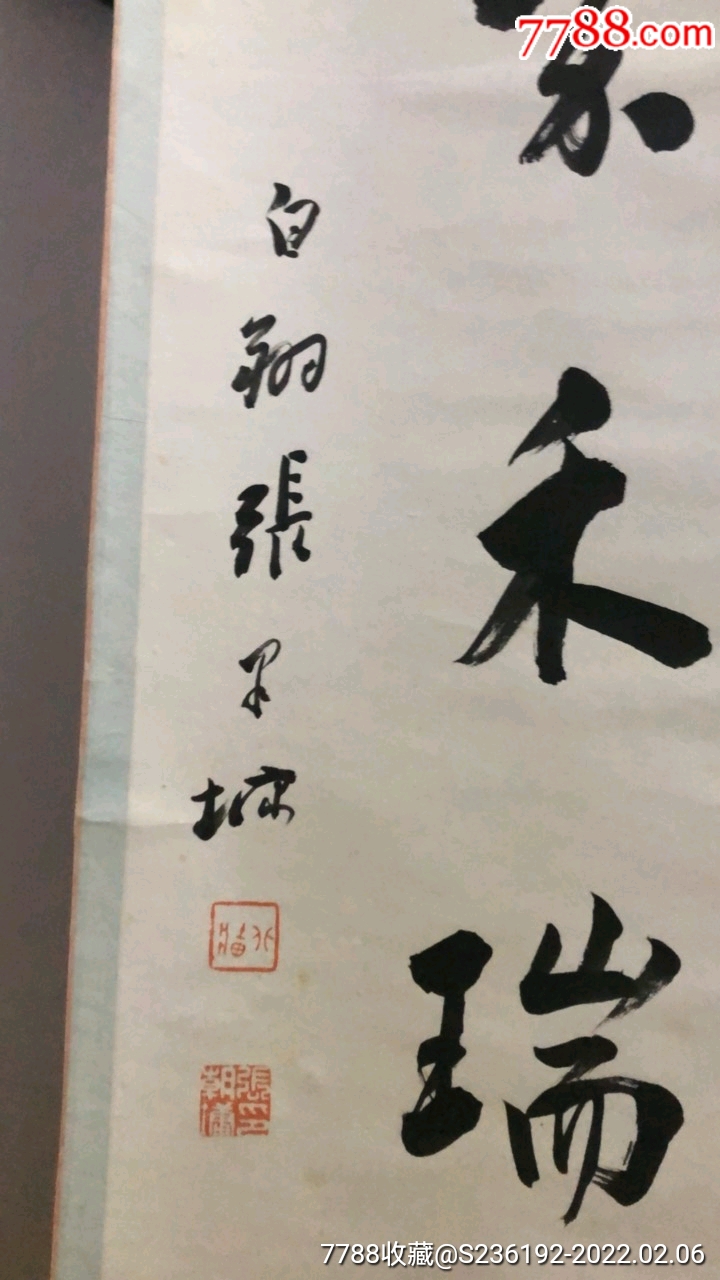 7788.com
禾瑞
白翔張墉
張印朝墉
7788收藏@S236192-2022.02.06